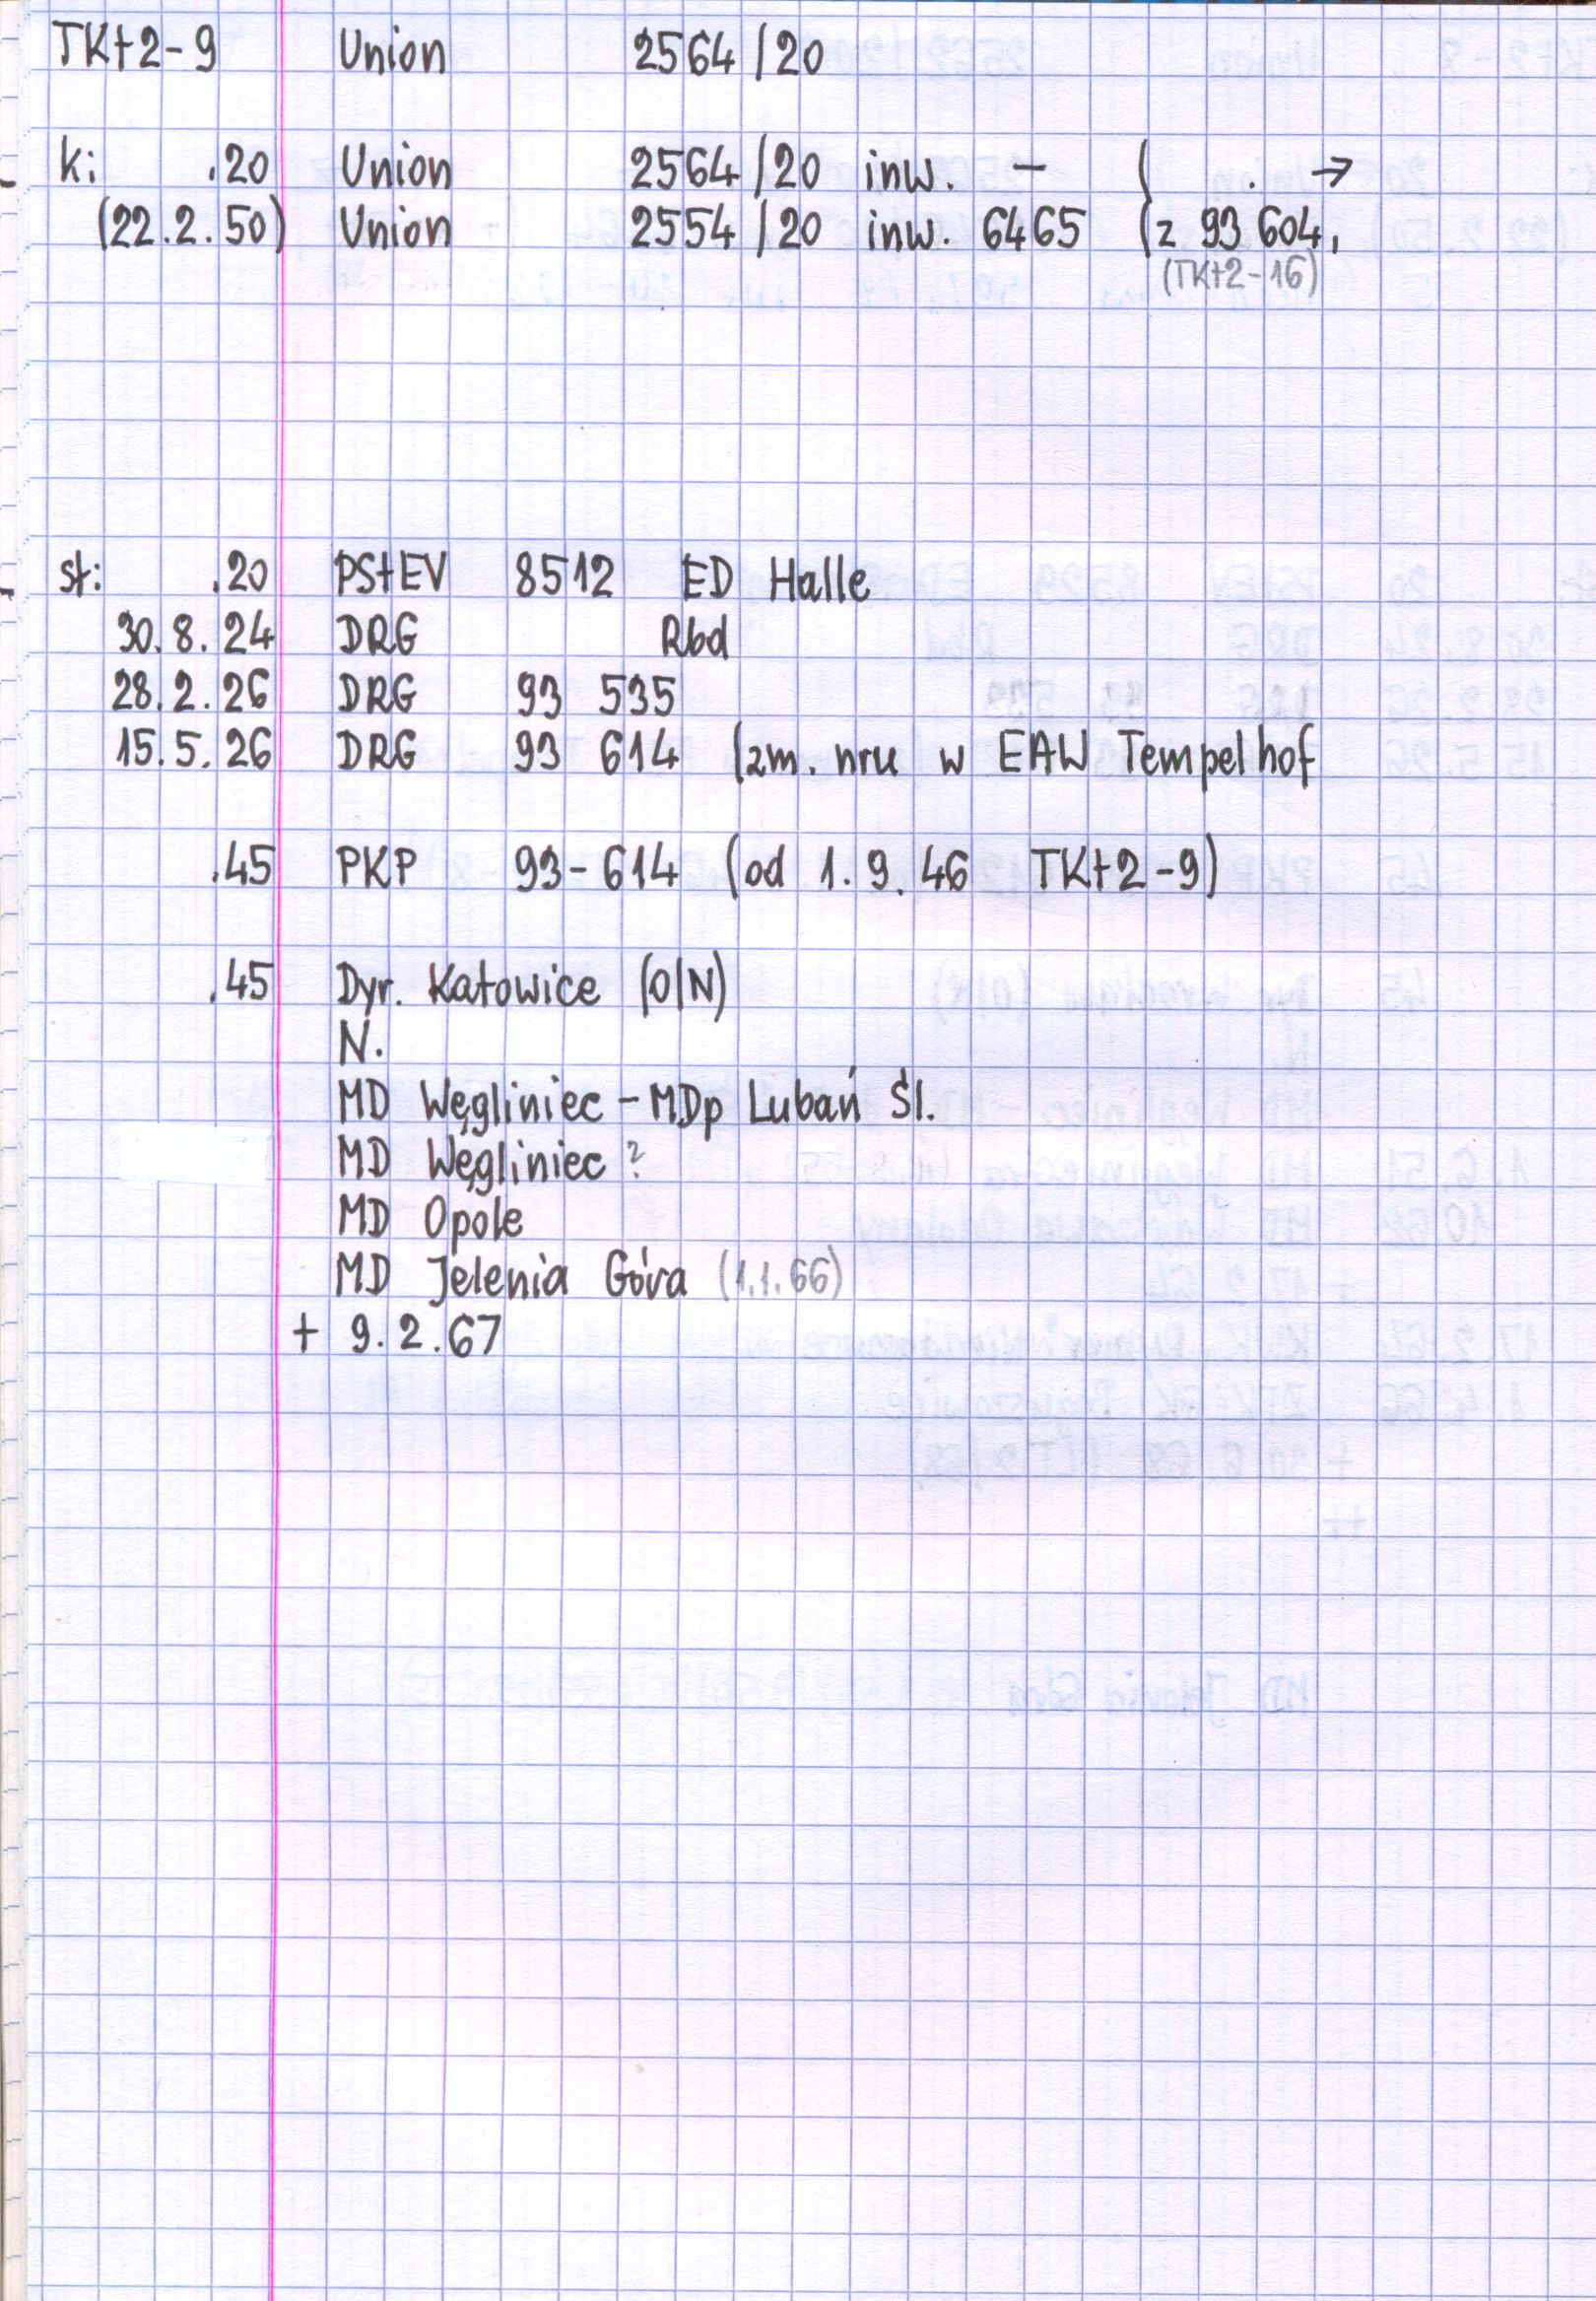 TKt2-9 Union 2564/20
k: .20 Union 2564/20 inw. – ( . →
(22.2.50) Union 2554/20 inw. 6465 (z 93 604,
(TKt2-16)
st: .20 PStEV 8512 ED Halle
30.8.24 DRG Rbd
28.2.26 DRG 93 535
15.5.26 DRG 93 614 (zm. nru w EAW Tempelhof
.45 PKP 93-614 (od 1.9.46 TKt2-9)
.45 Dyr. Katowice (O/N)
N.
MD Węgliniec – MDp Lubań Śl.
MD Węgliniec ?
MD Opole
MD Jelenia Góra (1.1.66)
+ 9.2.67